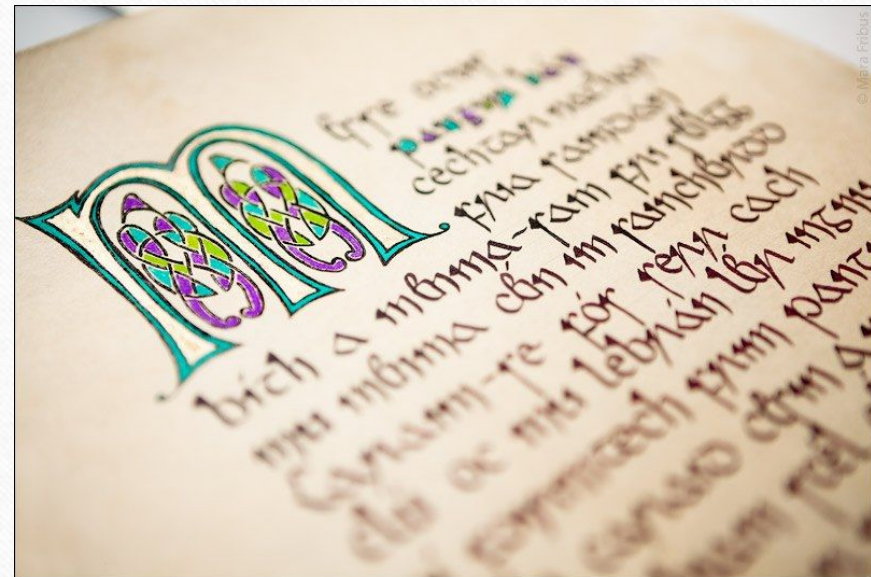 Messe ocus
pangur bán
cechtar nathar
fria saindán
bíth a menma-sam fri seilgg
mu menma céin im saincheirdd
Caraim-se fós ferr cach
clú oc mu lebrán léir ingnu
foirmtech frimm
caraid cesin a
scél
© Mara Fribus